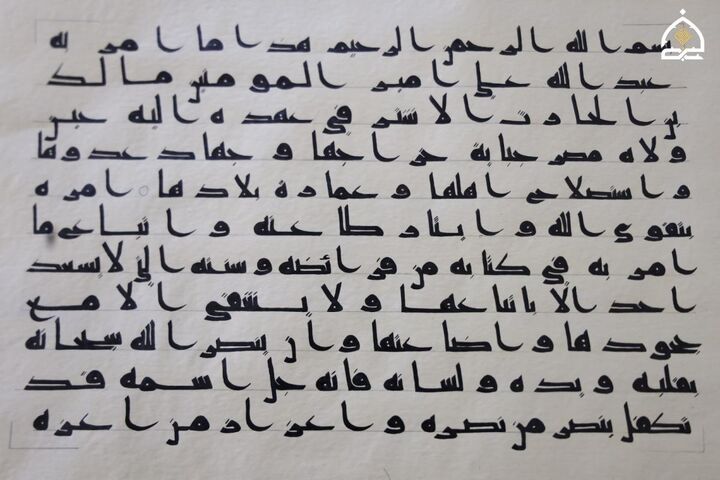 بسم الله الرحمن الرحيم هذا ما امر به
عبد الله علي امير المومنين مالك
بن الحارث الاشتر في عهده اليه حين
ولاه مصر جباية خراجها و جهاد عدوها
و استصلاح اهلها و عمارة بلادها امره
بتقوى الله و ايثار طاعته و اتباع ما
امر به في كتابه من فرائضه و سننه التي لا يسعد
احد الا باتباعها و لا يشقى الا مع
جحودها و اضاعتها و ان ينصر الله سبحانه
بقلبه و يده و لسانه فانه جل اسمه قد
تكفل بنصر من نصره و اعزاز من اعزه